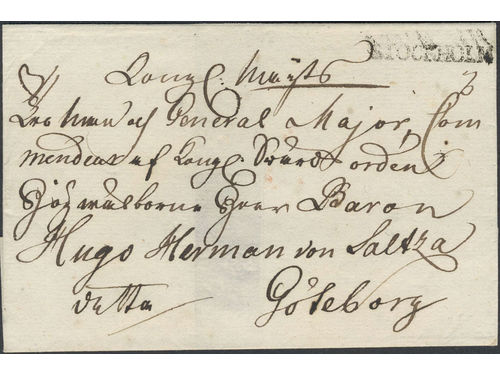 STOCKHOLM
Kongl. Maijts
Tro Man och General Major, Com
mendeur af Kongl. Swärds orden
Högwälborne Herr Baron
Hugo Herman von Saltza
Göteborg